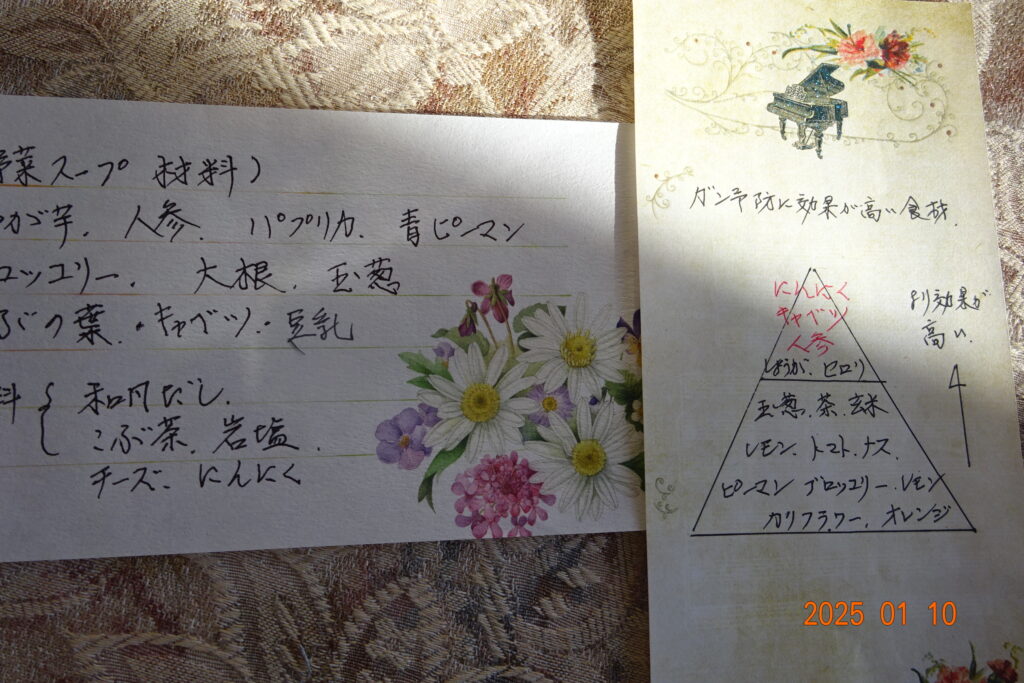 野菜スープ 材料)
がが芋. 人参. パプリカ. 青ピーマン
ロッコリー. 大根. 玉葱
の葉.・キャベツ.・豆乳
料 { 和風だし.
こぶ茶. 岩塩.
チーズ. にんにく
ガン予防に効果が高い食材.
にんにく
キャベツ
人参
しょうが. セロリ
玉葱. 茶. 玄米
レモン. トマト. ナス.
ピーマン ブロッコリー. レモン
カリフラワー. オレンジ
より効果が
高い.
2025 01 10